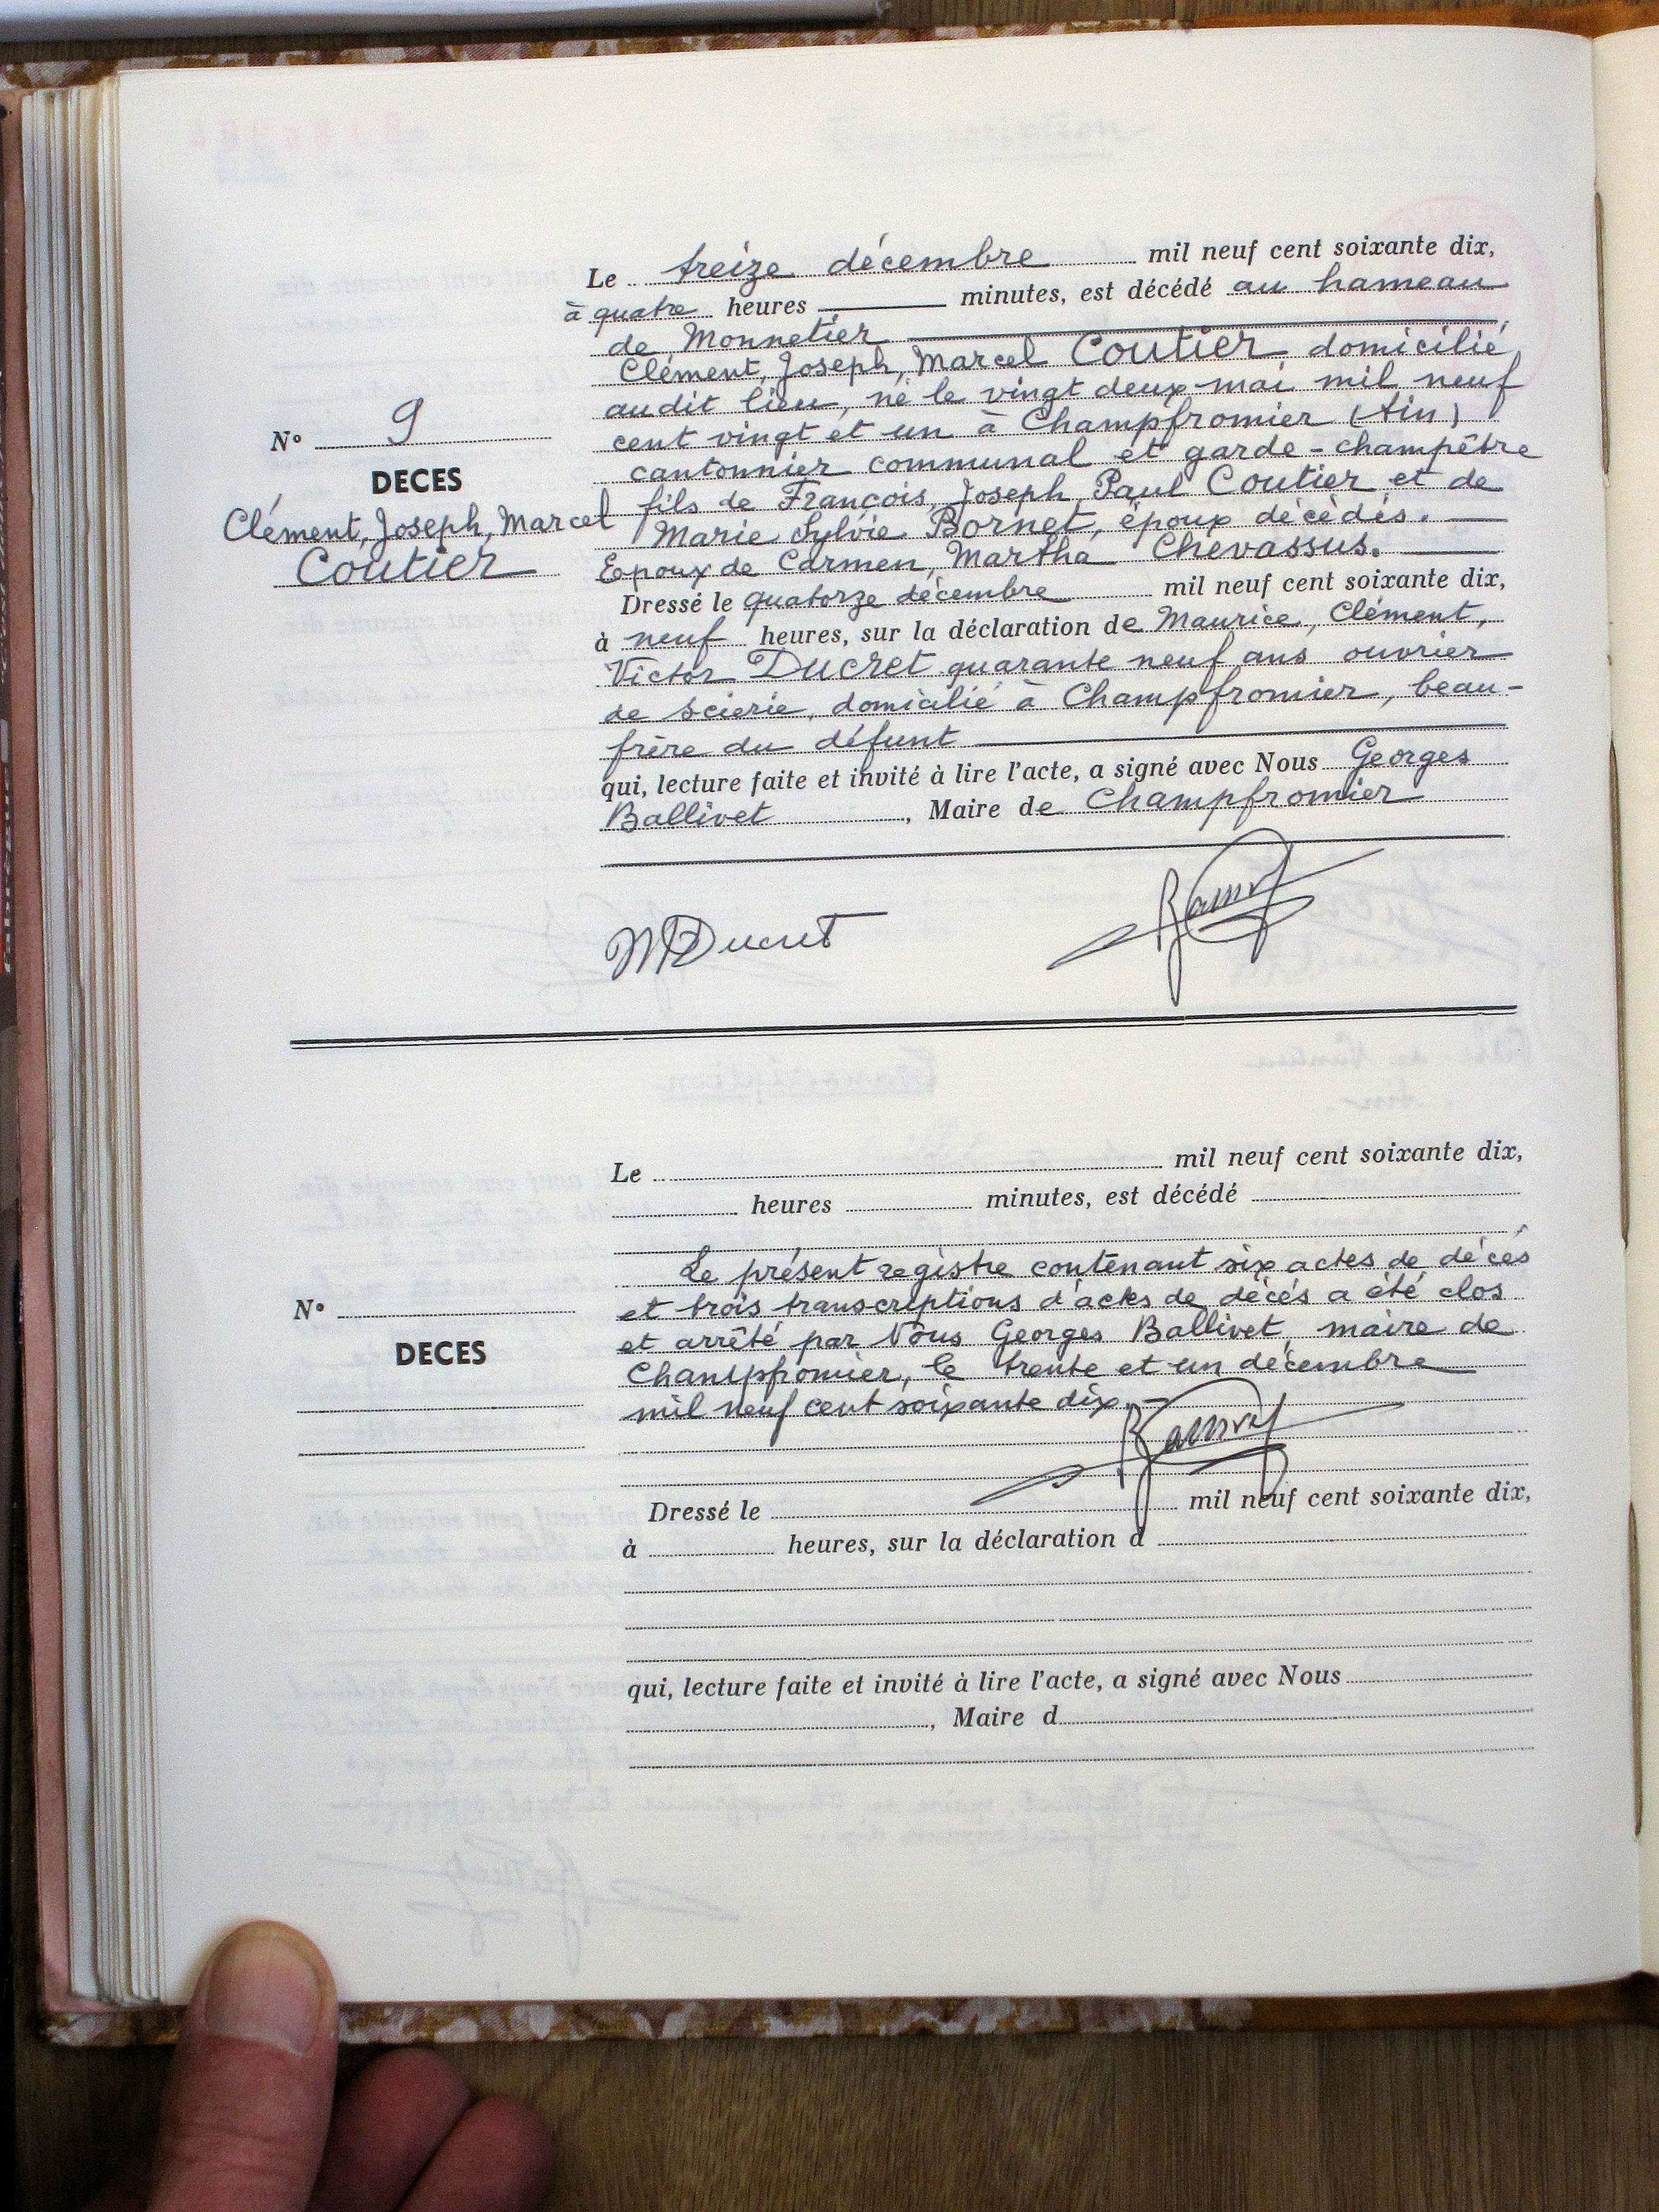 Le treize décembre mil neuf cent soixante dix,
à quatre heures minutes, est décédé au hameau
de Monnetier
Clément, Joseph, Marcel Coutier domicilié
audit lieu, né le vingt deux mai mil neuf
cent vingt et un à Champfromier (Ain)
cantonnier communal et garde-champêtre
fils de François, Joseph, Paul Coutier et de
Marie Sylvie Bornet, époux décédés.
Epoux de Carmen, Martha Chevassus.
N° 9
DECES
Clément, Joseph, Marcel
Coutier
Dressé le quatorze décembre mil neuf cent soixante dix,
à neuf heures, sur la déclaration de Maurice, Clément,
Victor Ducret quarante neuf ans ouvrier
de scierie, domicilié à Champfromier, beau-
frère du défunt
qui, lecture faite et invité à lire l'acte, a signé avec Nous Georges
Ballivet, Maire de Champfromier
MDucret
Le mil neuf cent soixante dix,
heures minutes, est décédé
Le présent registre contenant six actes de décès
et trois transcriptions d'actes de décès a été clos
et arrêté par Nous Georges Ballivet, maire de
Champfromier, le trente et un décembre
mil neuf cent soixante dix.
N°
DECES
Dressé le mil neuf cent soixante dix,
à heures, sur la déclaration d
qui, lecture faite et invité à lire l'acte, a signé avec Nous
, Maire d